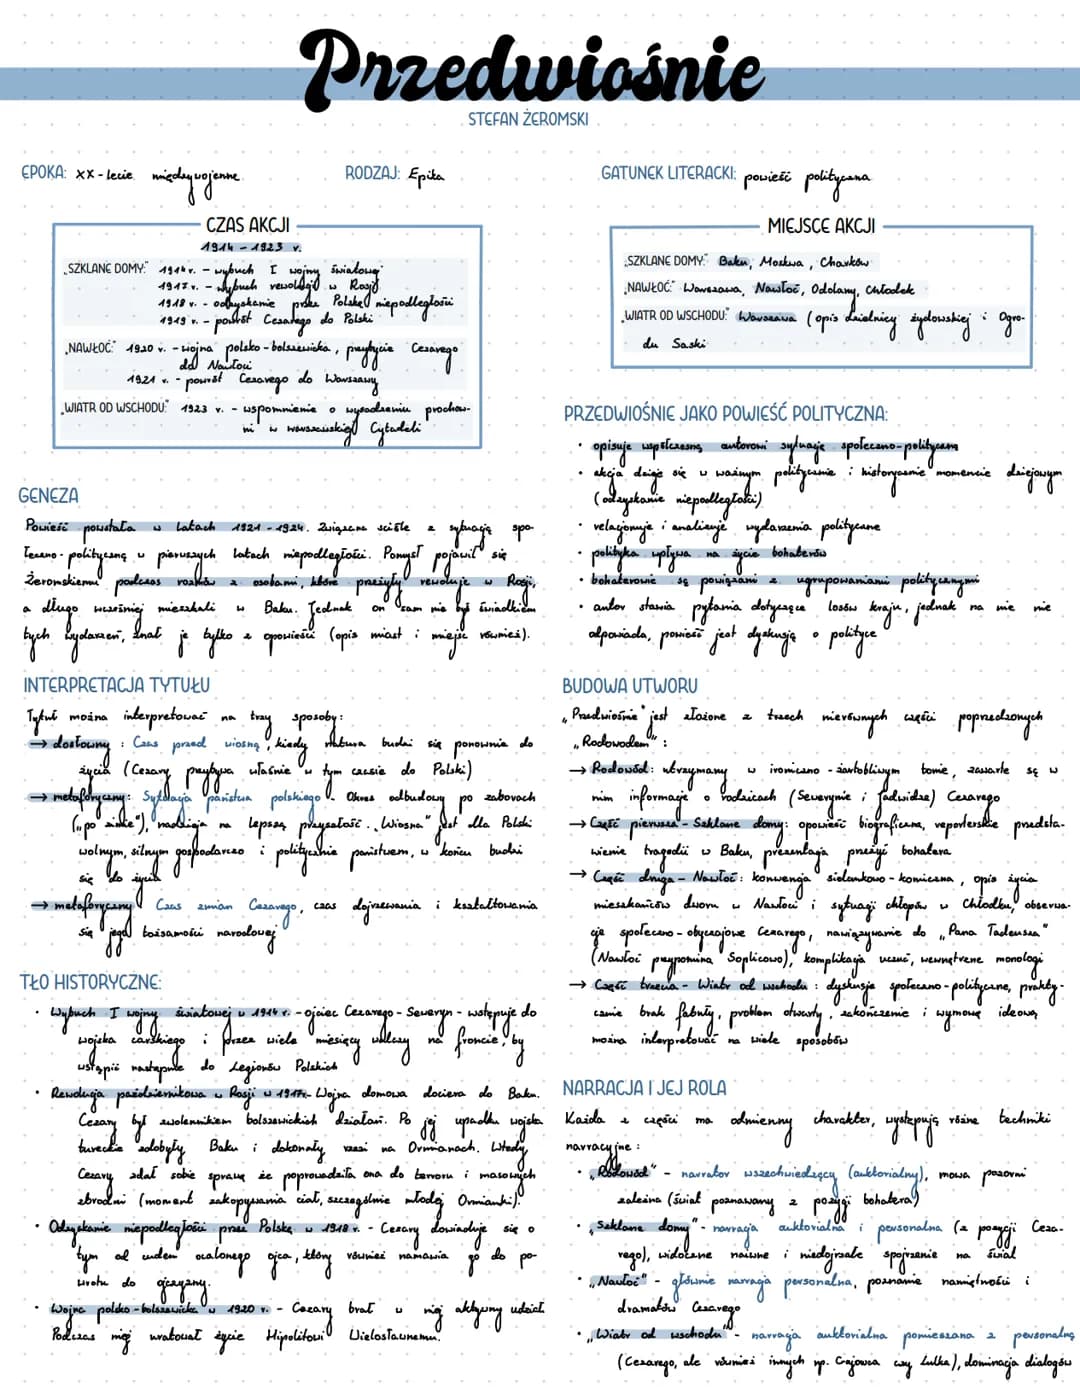 Przedwiośnie
STEFAN ŻEROMSKI
EPOKA: XX-lecie międzywojenne
RODZAJ: Epika
GATUNEK LITERACKI: powieść polityczna
CZAS AKCJI
1914 - 1923 r.
„SZKLANE DOMY:" 1914 r. - wybuch I wojny światowej
1917 r. - wybuch rewolucji w Rosji
1918 r. - odzyskanie przez Polskę niepodległości
1919 r. - powrót Cezarego do Polski
„NAWŁOĆ:" 1920 r. - wojna polsko-bolszewicka, przybycie Cezarego
do Nawłoci
1921 r. - powrót Cezarego do Warszawy
„WIATR OD WSCHODU:" 1923 r. - wspomnienie o wysadzeniu prochow-
ni w warszawskiej Cytadeli
MIEJSCE AKCJI
„SZKLANE DOMY:" Baku, Moskwa, Charków
„NAWŁOĆ:" Warszawa, Nawłoć, Odolany, Chłodek
„WIATR OD WSCHODU:" Warszawa (opis dzielnicy żydowskiej i Ogro-
du Saski
GENEZA
Powieść powstała w latach 1921 - 1924. Związana ściśle z sytuacją spo-
łeczno-polityczną w pierwszych latach niepodległości. Pomysł pojawił się
Żeromskiemu podczas rozmów z osobami, które przeżyły rewolucję w Rosji,
a długo wcześniej mieszkali w Baku. Jednak on sam nie był świadkiem
tych wydarzeń, znał je tylko z opowieści (opis miast i miejsc również).
INTERPRETACJA TYTUŁU
Tytuł można interpretować na trzy sposoby:
→ dosłowny: Czas przed wiosną, kiedy natura budzi się ponownie do
życia (Cezary przybywa właśnie w tym czasie do Polski)
→ metaforyczny: Sytuacja państwa polskiego - Okres odbudowy po zaborach
(„po zimie"), nadzieja na lepszą przyszłość. „Wiosna" jest dla Polski
wolnym, silnym gospodarczo i politycznie państwem, w końcu budzi
się do życia
→ metaforyczny: Czas zmian Cezarego, czas dojrzewania i kształtowania
się jego tożsamości narodowej
TŁO HISTORYCZNE:
• Wybuch I wojny światowej w 1914 r. - ojciec Cezarego - Seweryn - wstępuje do
wojska carskiego i przez wiele miesięcy walczy na froncie, by
wstąpić następnie do Legionów Polskich
• Rewolucja październikowa w Rosji w 1917r. - Wojna domowa dociera do Baku.
Cezary był zwolennikiem bolszewickich działań. Po jej upadku wojska
tureckie zdobyły Baku i dokonały rzezi na Ormianach. Wtedy
Cezary zdał sobie sprawę że poprowadziła ona do terroru i masowych
zbrodni (moment zakopywania ciał, szczególnie młodej Ormianki).
• Odzyskanie niepodległości przez Polskę w 1918 r. - Cezary dowiaduje się o
tym od cudem ocalonego ojca, który również namawia go do po-
wrotu do ojczyzny.
• Wojna polsko-bolszewicka w 1920 r. - Cezary brał w niej aktywny udział.
Podczas niej uratował życie Hipolitowi Wielosławskiemu.
PRZEDWIOŚNIE JAKO POWIEŚĆ POLITYCZNA:
• opisuje współczesną autorowi sytuację społeczno-polityczną
• akcja dzieje się w ważnym politycznie i historycznie momencie dziejowym
(odzyskanie niepodległości)
• relacjonuje i analizuje wydarzenia polityczne
• polityka wpływa na życie bohaterów
• bohaterowie są powiązani z ugrupowaniami politycznymi
• autor stawia pytania dotyczące losów kraju, jednak na nie nie
odpowiada, powieść jest dyskusją o polityce
BUDOWA UTWORU
„Przedwiośnie" jest złożone z trzech nierównych części poprzedzonych
„Rodowodem":
→ Rodowód: utrzymany w ironiczno-żartobliwym tonie, zawarte są w
nim informacje o rodzicach (Sewerynie i Jadwidze) Cezarego
→ Część pierwsza - Szklane domy: opowieść biograficzna, reporterskie przedsta-
wienie tragedii w Baku, prezentacja przeżyć bohatera
→ Część druga - Nawłoć: konwencja sielankowo-komiczna, opis życia
mieszkańców dworu w Nawłoci i sytuacji chłopów w Chłodku, obserwa-
cje społeczno-obyczajowe Cezarego, nawiązywanie do „Pana Tadeusza"
(Nawłoć przypomina Soplicowo), komplikacja uczuć, wewnętrzne monologi
→ Część trzecia - Wiatr od wschodu: dyskusje społeczno-polityczne, prakty-
cznie brak fabuły, problem otwarty, zakończenie i wymowę ideową
można interpretować na wiele sposobów
NARRACJA I JEJ ROLA
Każda z części ma odmienny charakter, występują różne techniki
narracyjne:
• „Rodowód" - narrator wszechwiedzący (auktorialny), mowa pozorni
zależna (świat poznawany z pozycji bohatera)
• „Szklane domy" - narracja auktorialna i personalna (z pozycji Ceza-
rego), widoczne naiwne i niedojrzałe spojrzenie na świat
• „Nawłoć" - głównie narracja personalna, poznanie namiętności i
dramatów Cezarego
• „Wiatr od wschodu" - narracja auktorialna pomieszana z personalną
(Cezarego, ale również innych np. Gajowca czy Lulka), dominacja dialogów